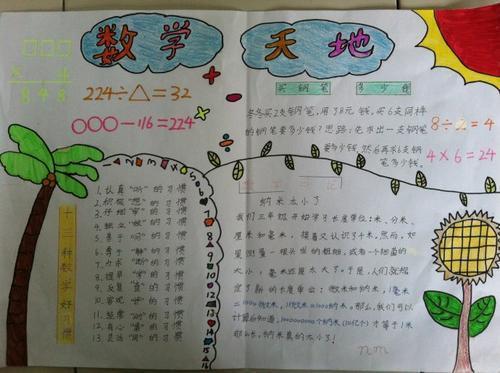 数学天地
□□□
× 4
8 4 8
224÷△=32
○○○-116=224
买钢笔 多少钱
冬冬买2支钢笔,用了8元钱,买6支同样
的钢笔要多少钱?思路:先求出一支钢笔
要多少钱,然后再求6支钢
笔多少钱.
8÷2=4
4×6=24
十三种数学好习惯
1.认真"听"的习惯
2.积极"想"的习惯
3.仔细"审"的习惯
4.独立"做"的习惯
5.善于"问"的习惯
6.勇于"辩"的习惯
7.力求"断"的习惯
8.提早"学"的习惯
9.反复"查"的习惯
10.客观"评"的习惯
11.经常"动"的习惯
12.有心"集"的习惯
13.灵活"用"的习惯
数学日记
纳米太小了
我们三年级开始学习长度单位:米、分米、
厘米和毫米,接着又认识了千米,然后,如
果测量一根头发的粗细,或者一个细菌的
大小,毫米还是太大了。于是,人们就规
定了新的长度单位:微米和纳米,1毫米
=1000微米,1微米=1000纳米。那么,我们可以
计算而知道,1000000000个纳米(10亿个)才等于1米
那么长,纳米真的太小了!
nm